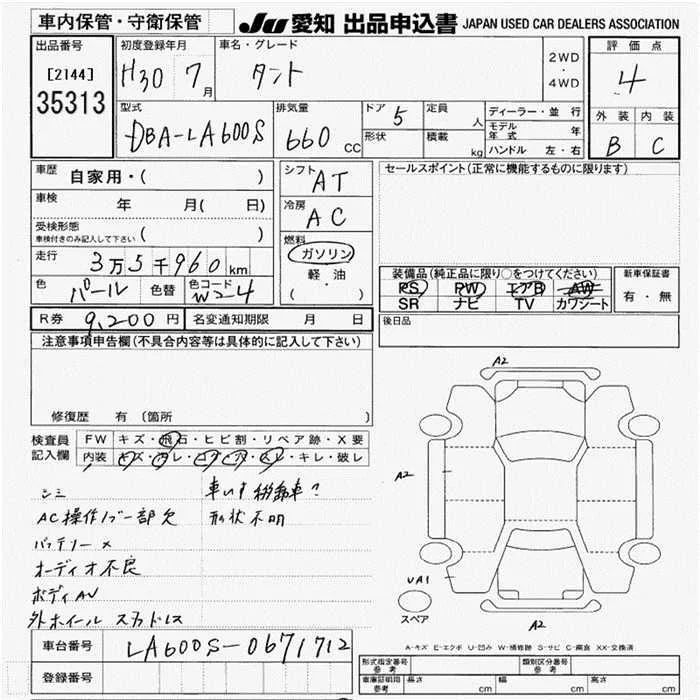 車内保管・守衛保管
JU 愛知 出品申込書 JAPAN USED CAR DEALERS ASSOCIATION
出品番号
[2144]
35313
初度登録年月
H30 7月
車名・グレード
タント
2WD
・
4WD
評価点
4
外装 内装
B C
型式
DBA-LA600S
排気量
660 CC
ドア 5
形状
定員 人
積載 kg
ディーラー・並行
モデル年式 年
ハンドル 左・右
車歴 自家用・( )
車検 年 月( 日)
受検形態
車検付きのみ記入して下さい ( )
走行 3万5千960km
色 パール 色替 色コード W24
シフト AT
冷房 AC
燃料
ガソリン
軽油
( ・ )
セールスポイント(正常に機能するものに限ります)
装備品(純正品に限り○をつけてください)
PS PW エアB AW
SR ナビ TV カワシート
新車保証書
有・無
R券 9,200円 名変通知期限 月 日
後日品
注意事項申告欄(不具合内容等は具体的に記入して下さい)
修復歴 有(箇所 )
検査員記入欄
FW キズ・飛石・ヒビ割・リペア跡・X要
内装 キズ・汚レ・コゲ・穴・スレ・キレ・破レ
シミ 車いす移動車?
AC操作ノブ一部欠 形状不明
バッテリー×
オーディオ不良
ボディAU
外ホイール スタッドレス
A2
A2
UA1
スペア
A2
A-キズ E-エクボ U-凹み W-補修跡 S-サビ C-腐食 XX-交換済
車台番号 LA600S-0671712
登録番号
形式指定番号
参考
類別区分番号
参考
車庫証明用
参考
長さ cm 幅 cm 高さ cm